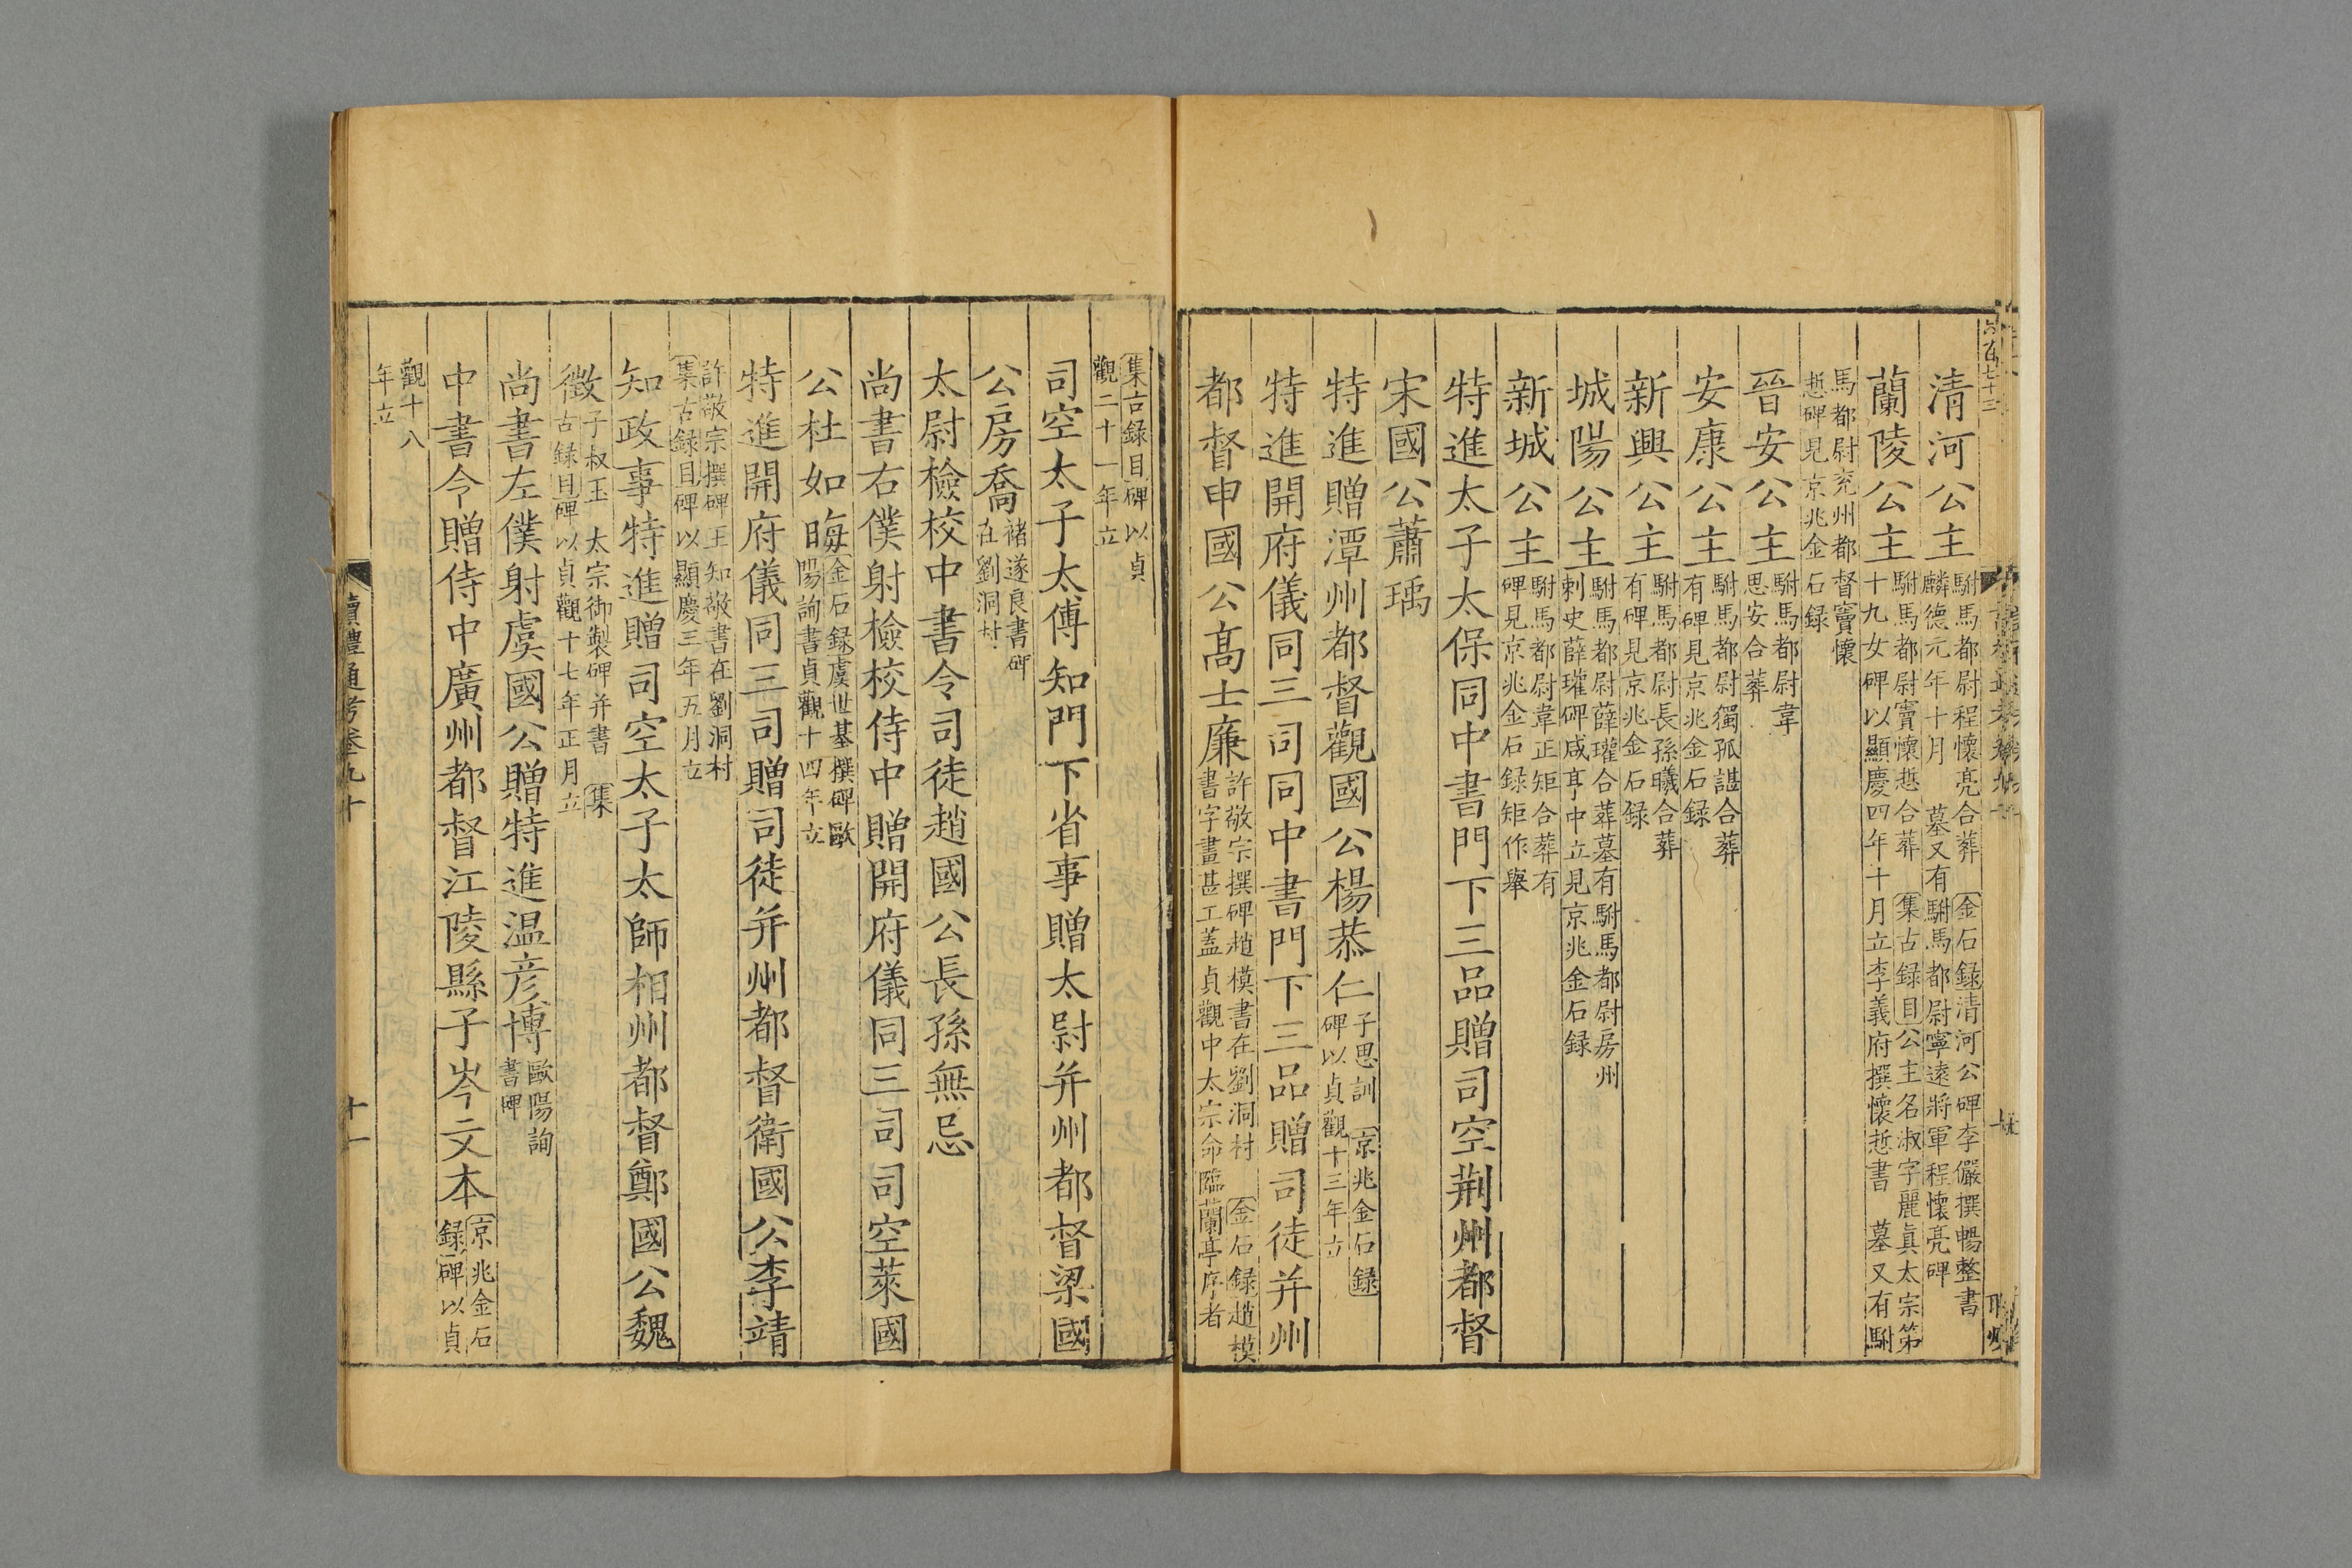 清河公主駙馬都尉程懷亮合葬　金石録清河公碑李儼撰暢整書
麟德元年十月　墓又有駙馬都尉寧遠將軍程懷亮碑
蘭陵公主駙馬都尉竇懷悊合葬　集古録目公主名淑字麗真太宗第
十九女碑以顯慶四年十月立李義府撰懷悊書　墓又有駙
馬都尉兖州都督竇懷
悊碑見京兆金石録
晉安公主駙馬都尉韋
思安合葬
安康公主駙馬都尉獨孤諶合葬
有碑見京兆金石録
新興公主駙馬都尉長孫曦合葬
有碑見京兆金石録
城陽公主駙馬都尉薛瓘合葬墓有駙馬都尉房州
刺史薛瓘碑咸亨中立見京兆金石録
新城公主駙馬都尉韋正矩合葬有
碑見京兆金石録矩作舉
特進太子太保同中書門下三品贈司空荆州都督
宋國公蕭瑀
特進贈潭州都督觀國公楊恭仁子思訓　京兆金石録
碑以貞觀十三年立
特進開府儀同三司同中書門下三品贈司徒并州
都督申國公高士廉許敬宗撰碑趙模書在劉洞村　金石録趙模
書字畫甚工蓋貞觀中太宗命臨蘭亭序者
集古録目碑以貞
觀二十一年立
司空太子太傅知門下省事贈太尉并州都督梁國
公房喬褚遂良書碑
在劉洞村
太尉檢校中書令司徒趙國公長孫無忌
尚書右僕射檢校侍中贈開府儀同三司司空萊國
公杜如晦金石録虞世基撰碑歐
陽詢書貞觀十四年立
特進開府儀同三司贈司徒并州都督衛國公李靖
許敬宗撰碑王知敬書在劉洞村
集古録目碑以顯慶三年五月立
知政事特進贈司空太子太師相州都督鄭國公魏
徵子叔玉　太宗御製碑并書　集
古録目碑以貞觀十七年正月立
尚書左僕射虞國公贈特進温彦博歐陽詢
書碑
中書令贈侍中廣州都督江陵縣子岑文本京兆金石
録碑以貞
觀十八
年立
讀禮通考卷九十
十一